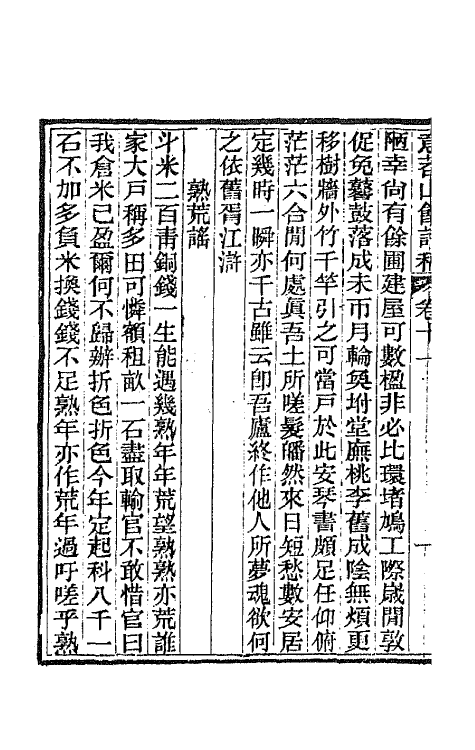 意苕山館詩稿 卷十一
陋幸尚有餘圃建屋可數楹非必比環堵鳩工際歲閒敦
促免鼛鼓落成未帀月輪奐坿堂廡桃李舊成陰無煩更
移樹牆外竹千竿引之可當戶於此安琴書頗足任仰俯
茫茫六合閒何處眞吾土所嗟髮皤然來日短愁數安居
定幾時一瞬亦千古雖云卽吾廬終作他人所夢魂欲何
之依舊胥江滸
熟荒謠
斗米二百靑銅錢一生能遇幾熟年年荒望熟熟亦荒誰
家大戶稱多田可憐額租畝一石盡取輸官不敢惜官曰
我倉米已盈爾何不歸辦折色折色今年定起科八千一
石不加多負米換錢錢不足熟年亦作荒年過吁嗟乎熟